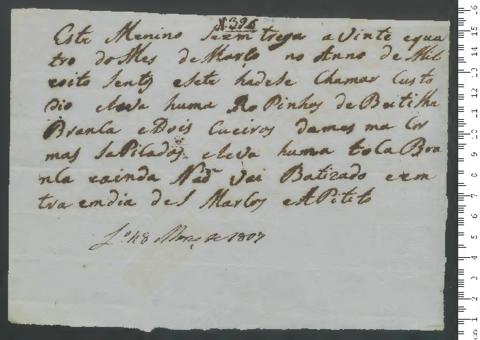 N.396
Este Menino Se em trega a Vinte e qua
tro do Mes de Março no Anno de Mil
e oito Sentos e Sete hade Se Chamar Custo
dio e leva huma Ropinhos de Baetilha
Branca e Dois Cueiros da mesma Co
mas e leva huma toca Bra
nca e ainda Não Vai Batizado e em
tra em dia de S Marcos e
18 Março de 1807